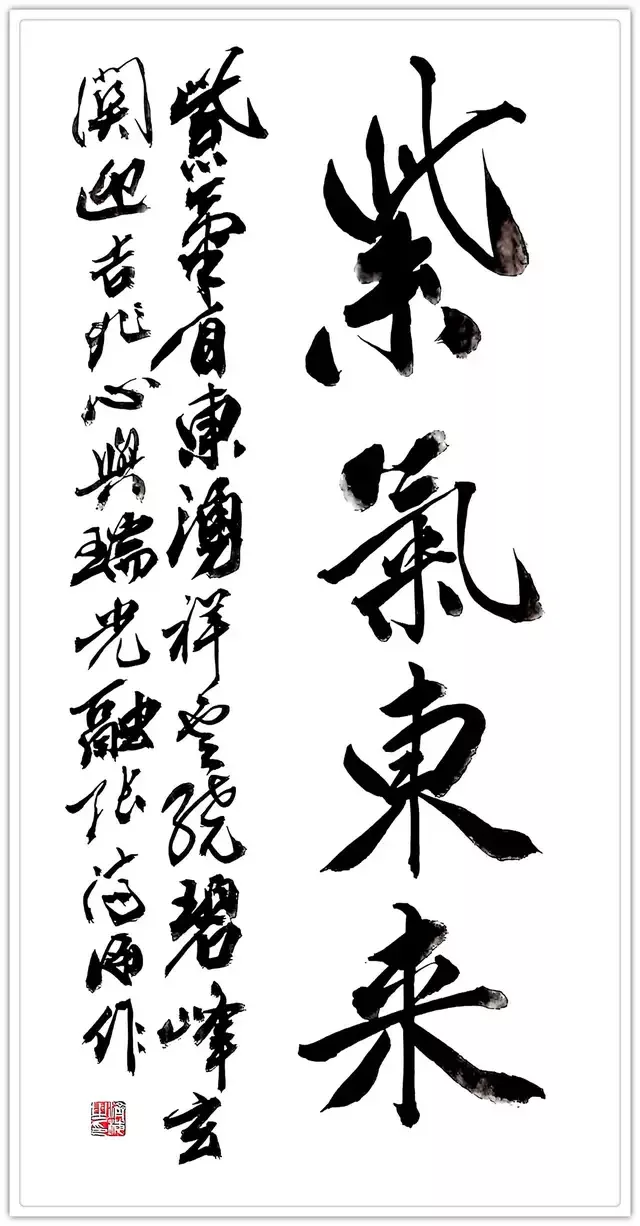 紫氣東来
紫氣東湧祥雲繞碧峰玄
關迎吉兆心與瑞光融張作